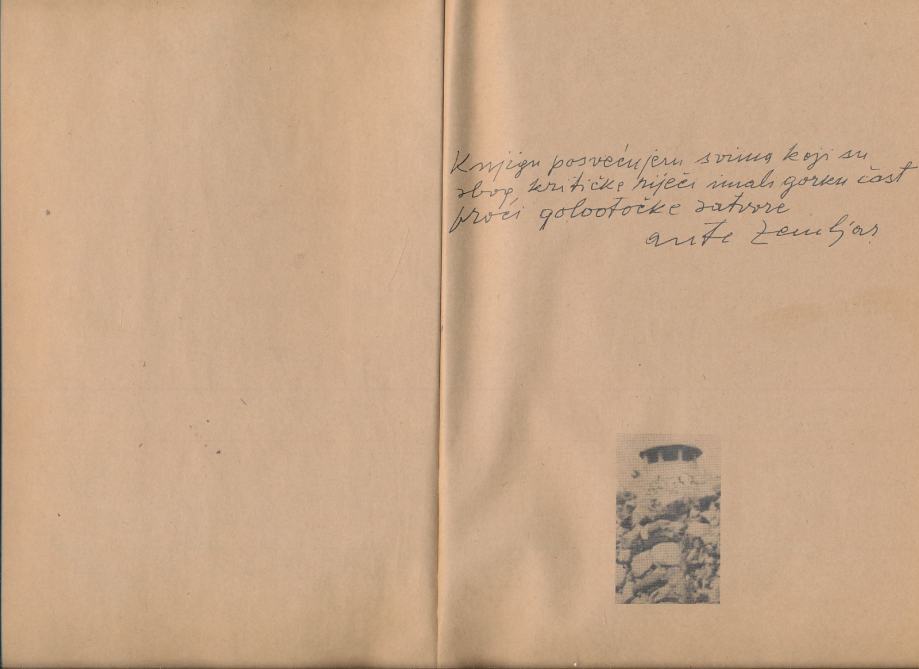 Knjigu posvećujem svima koji su
zbog kritičke riječi imali gorku čast
proći golootočke zatvore
ante zemljar